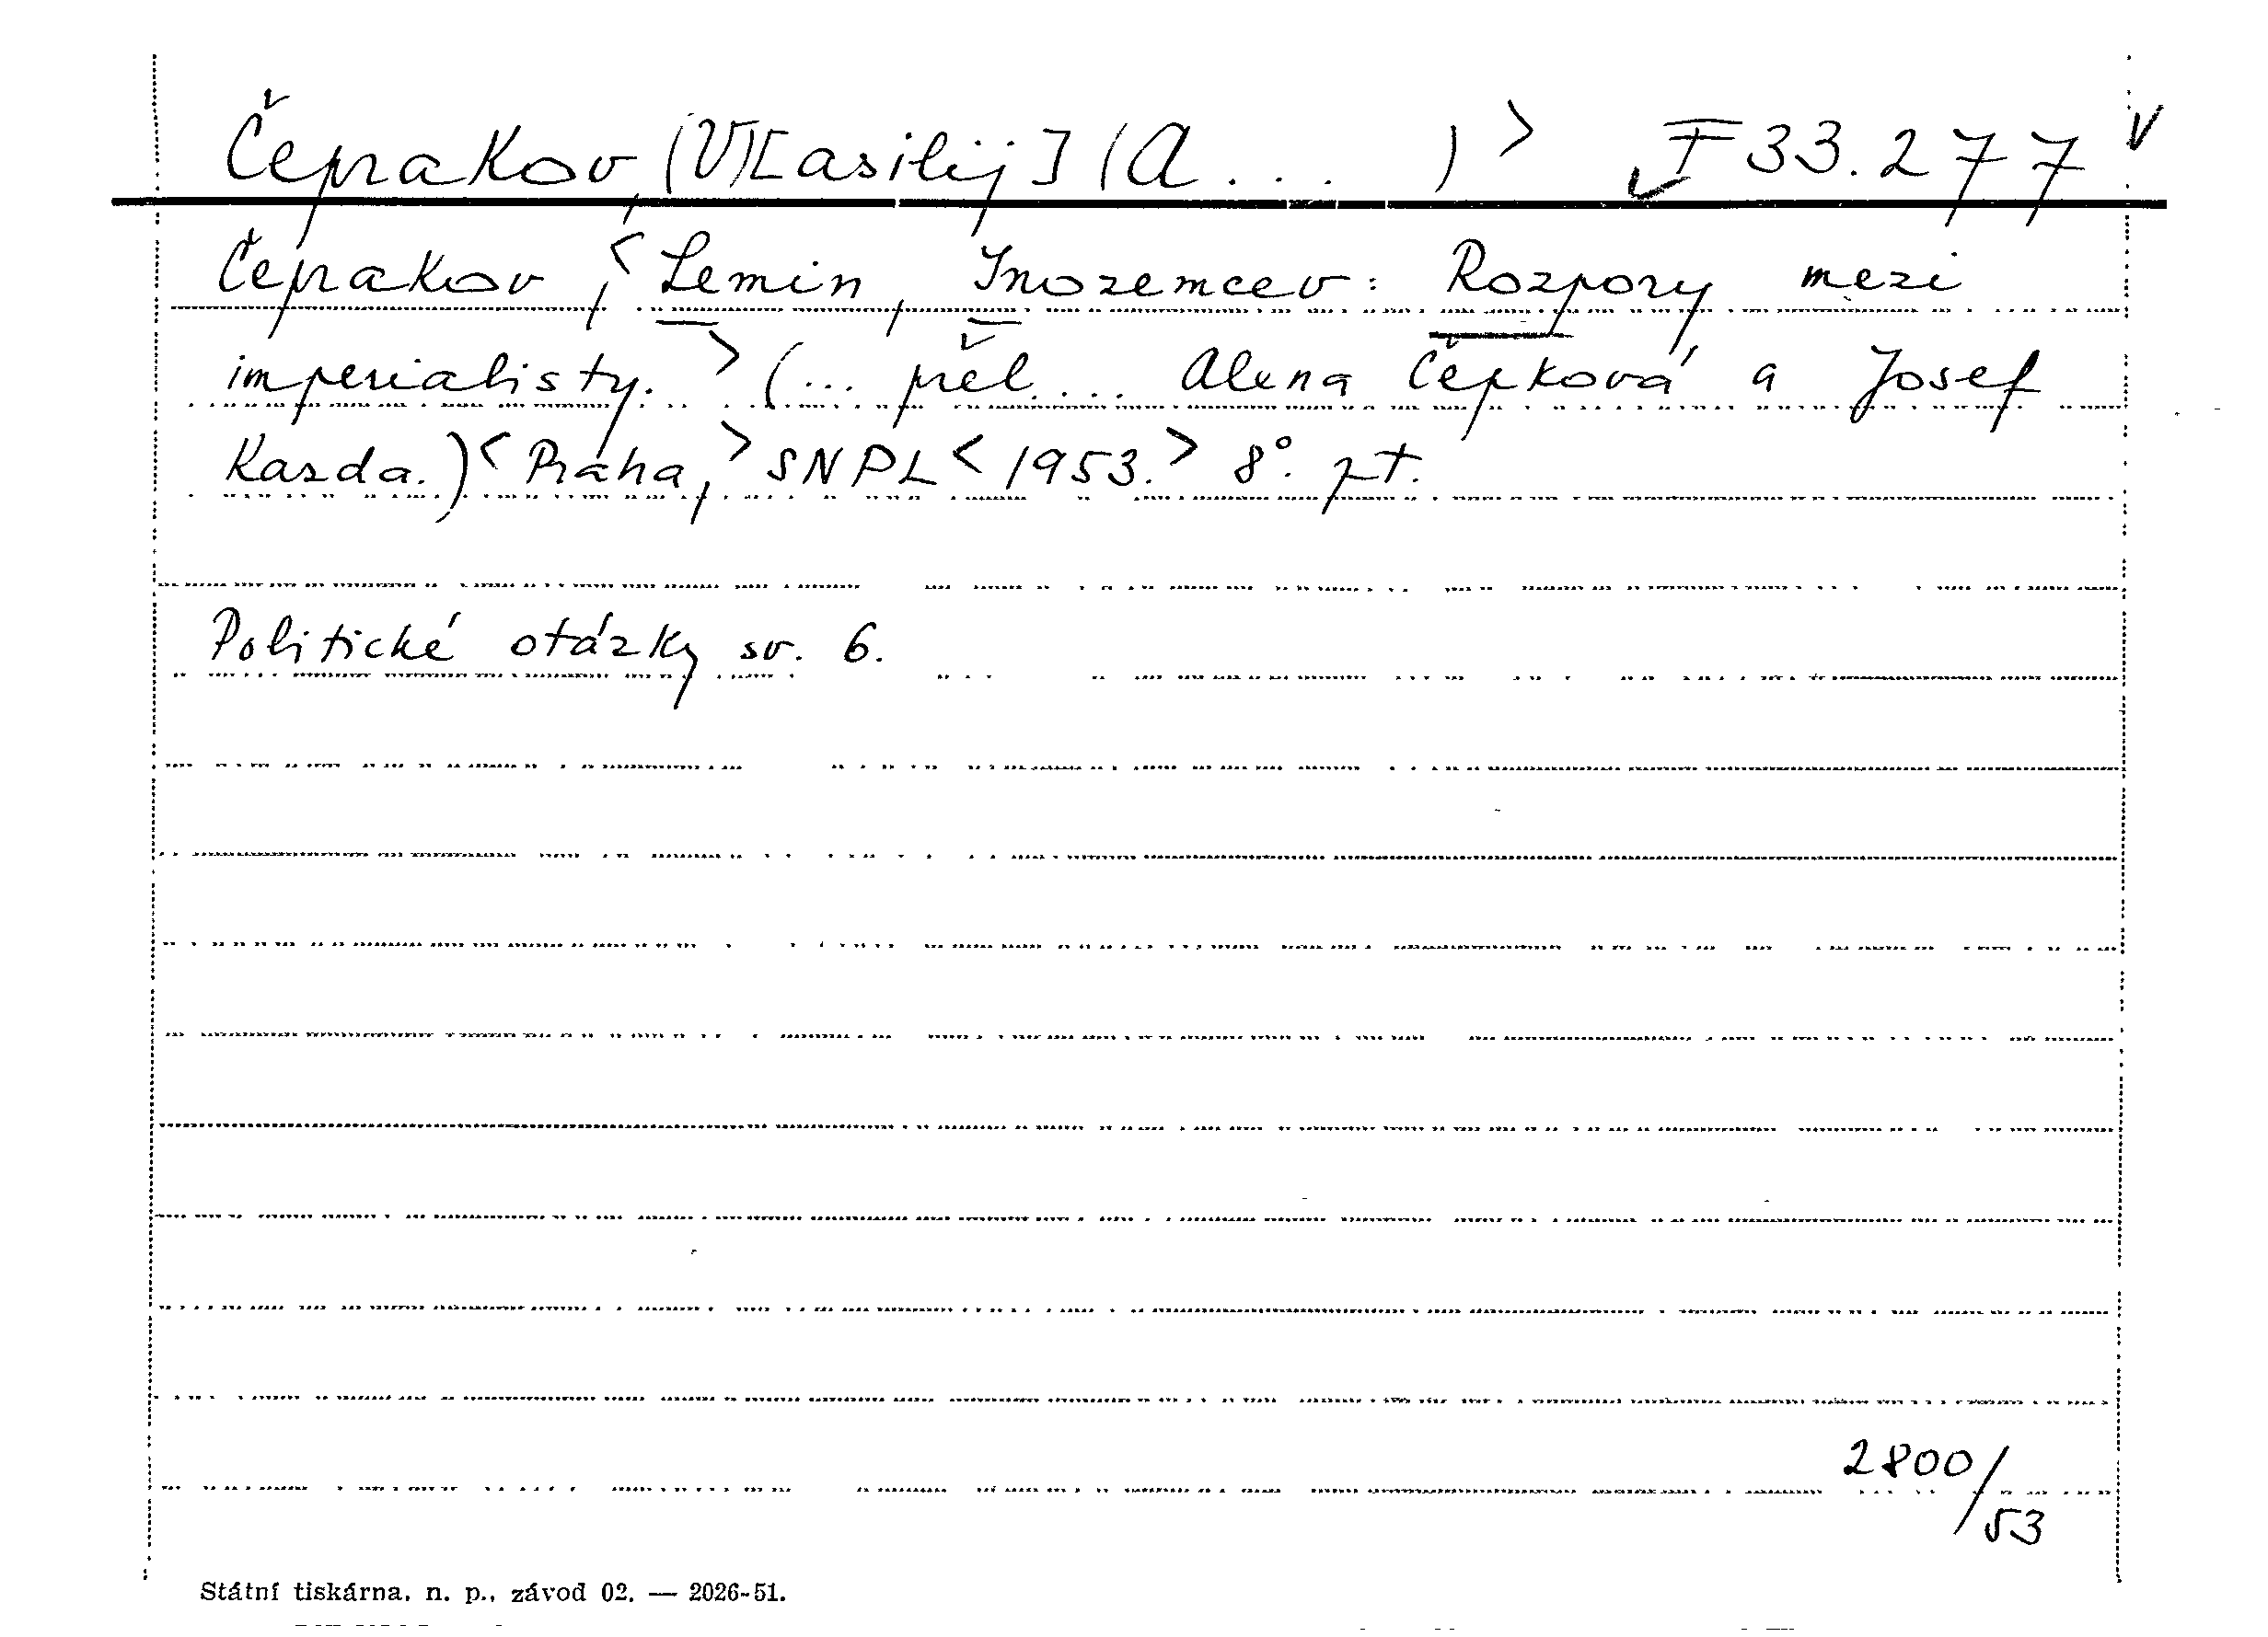 Čeprakov, (V)[asilij] (A... )> F 33.277
Čeprakov, <Lemin, Inozemcev: Rozpory mezi
imperialisty.> (... přel.... Alena Čepková a Josef
Kazda.) <Praha,> SNPL <1953.> 8°. pt.
Politické otázky sv. 6.
2800/53
Státní tiskárna, n. p., závod 02. — 2026-51.